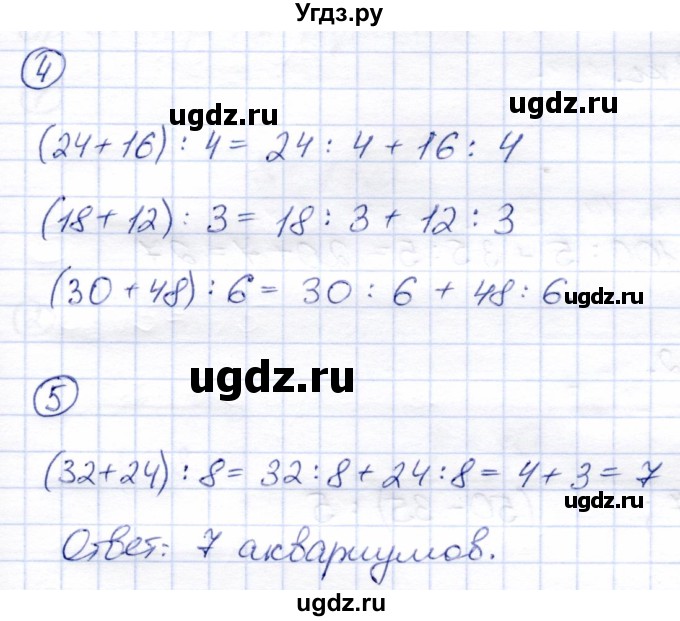 Угдз.ру
4
ugdz.ru
(24+16) : 4 = 24 : 4 + 16 : 4
(18+12) : 3 = 18 : 3 + 12 : 3
(30+48) : 6 = 30 : 6 + 48 : 6
ugdz.ru
ugdz.ru
5
(32+24) : 8 = 32 : 8 + 24 : 8 = 4 + 3 = 7
ugdz.ru
Ответ: 7 аквариумов.
ugdz.ru